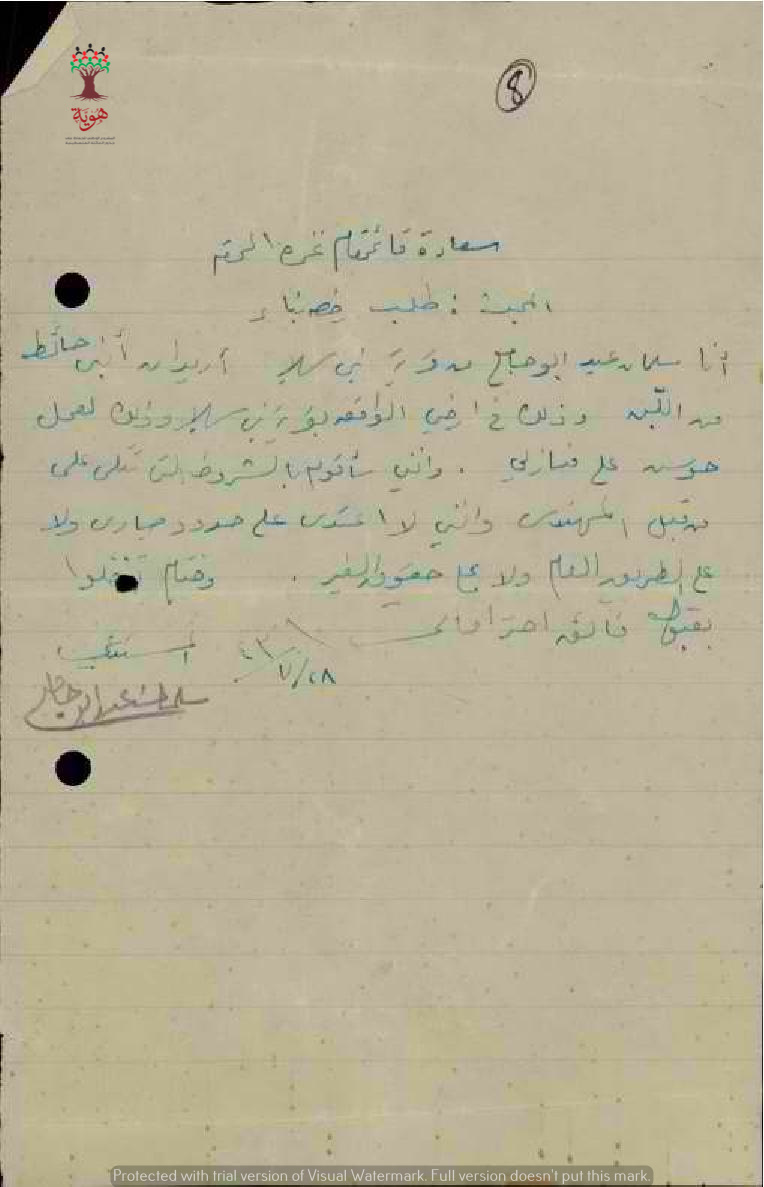 هوية
8
سعادة قائمقام غزه المحترم
المبحث : طلب رخصة بناء
أنا سلمان عيد ابو جامع من قرية بني سهيلا أريد ان أبني حائط
من اللبن وذلك في ارضي الواقعه بقرية بني سهيلا وذلك لعمل
حوش على منازلي . وانني سأقوم بالشروط التي تملى علي
من قبل المهندس وانني لا اعتدى على حدود جيراني ولا
على الطريق العام ولا على حقوق الغير . وختام تفضلوا
بقبول فائق احتراماتي
٢٨/٧/٤٣
المستدعي
سلمان عيد ابو جامع
Protected with trial version of Visual Watermark. Full version doesn't put this mark.